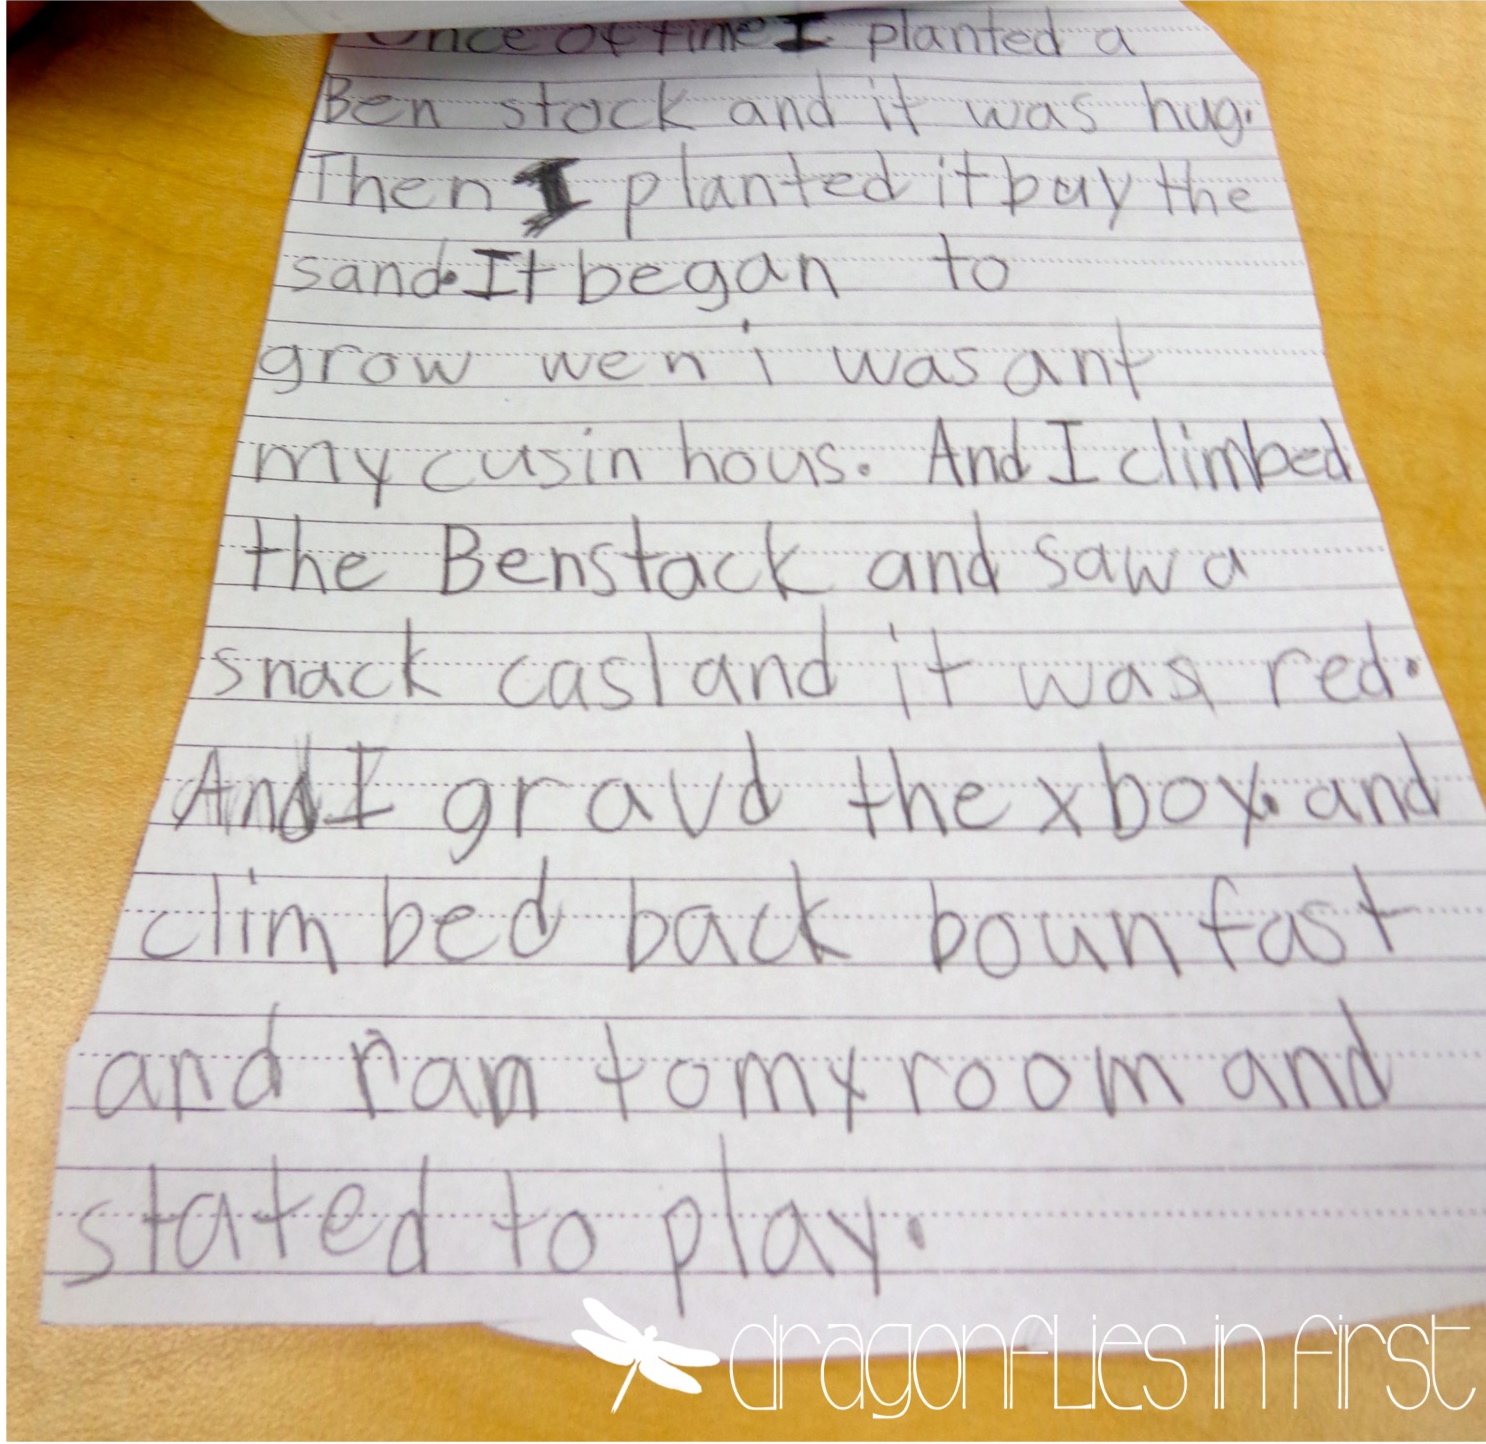 Once of time I planted a
Ben stack and it was hug.
Then I planted it buy the
sand. It began to
grow wen i was ant
my cusin hous. And I climbed
the Benstack and saw a
snack casl and it was red.
And I gravd the xbox. and
climbed back boun fast
and ran to my room and
stated to play.
dragonflies in first